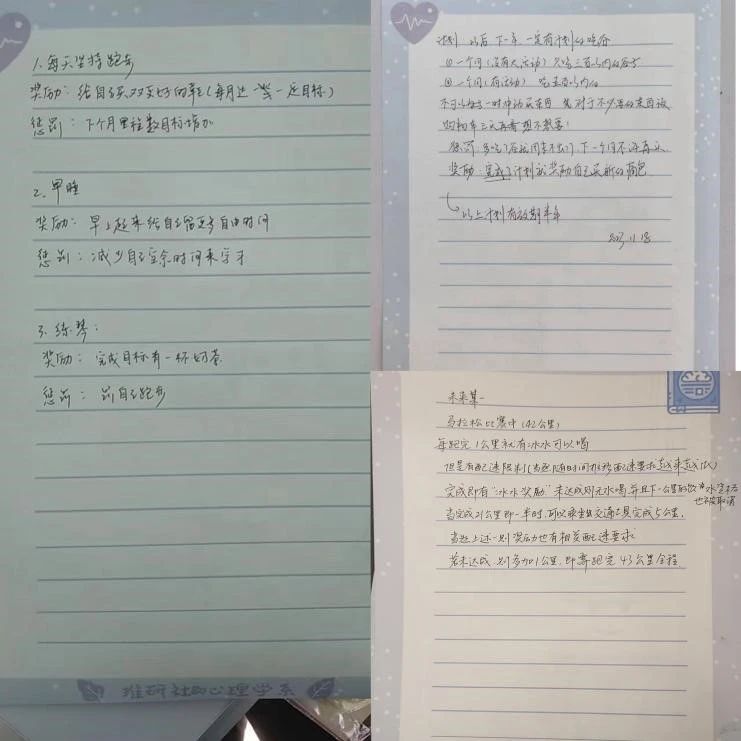 1. 每天坚持跑步
奖励: 给自己买双更好的鞋(每月达一定目标)
惩罚: 下个月里程数目标增加
2. 早睡
奖励: 早上起来给自己留更多自由时间
惩罚: 减少自己空余时间来学习
3. 练琴:
奖励: 完成目标有一杯奶茶
惩罚: 罚自己跑步
社的心理学系
计划 以后下一年一定有计划的吃谷
① 一个月(没有大活动) 只吃三百以内的谷子
② 一个月(有活动) 吃五百以内的
不可以因为一时冲动买东西 对于不必要的东西
购物车三天再看想不想要!
惩罚: 多吃了 下一个月不再
奖励: 完成了计划就奖励自己买新的
以上计划有效期半年
11.18
未来某一
马拉松比赛中(42公里)
每跑完1公里就有冰水可以喝
但是有配速限制(当然随时间推移配速要求越来越低)
完成即有“冰水奖励”未达成则无水喝并且下一公里的饮水资格也被取消
当完成21公里即一半时,可以乘坐交通工具完成5公里,
当然上述一则奖励也有相关配速要求
若未达成,则多加1公里,即需跑完43公里全程